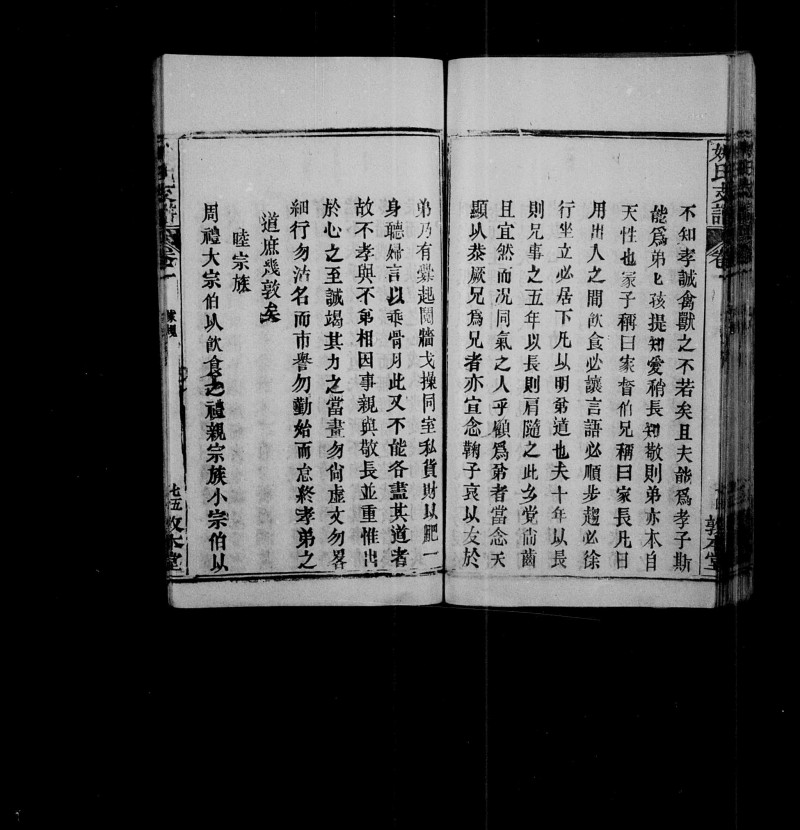 姚氏支譜
卷一
敦本堂
不知孝誠禽獸之不若矣且夫能爲孝子斯
能爲弟也孩提知愛稍長知敬則弟亦本自
天性也家子稱曰家督伯兄稱曰家長凡日
用出入之間飲食必讓言語必順步趨必徐
行坐立必居下凡以明弟道也夫十年以長
則兄事之五年以長則肩隨之此乡党尙齒
且宜然而况同氣之人乎顧爲弟者當念天
顯以恭厥兄爲兄者亦宜念鞠子哀以友於
弟乃有釁起鬩牆戈操同室私貨財以肥一
身聽婦言以乖骨月此又不能各盡其道者
故不孝與不弟相因事親與敬長並重惟出
於心之至誠竭其力之當盡勿尙虛文勿畧
細行勿沽名而市譽勿勤始而怠終孝弟之
道庶幾敦矣
睦宗族
周禮大宗伯以飲食之禮親宗族小宗伯以
氏支譜
卷一
家規
七五
敦本堂